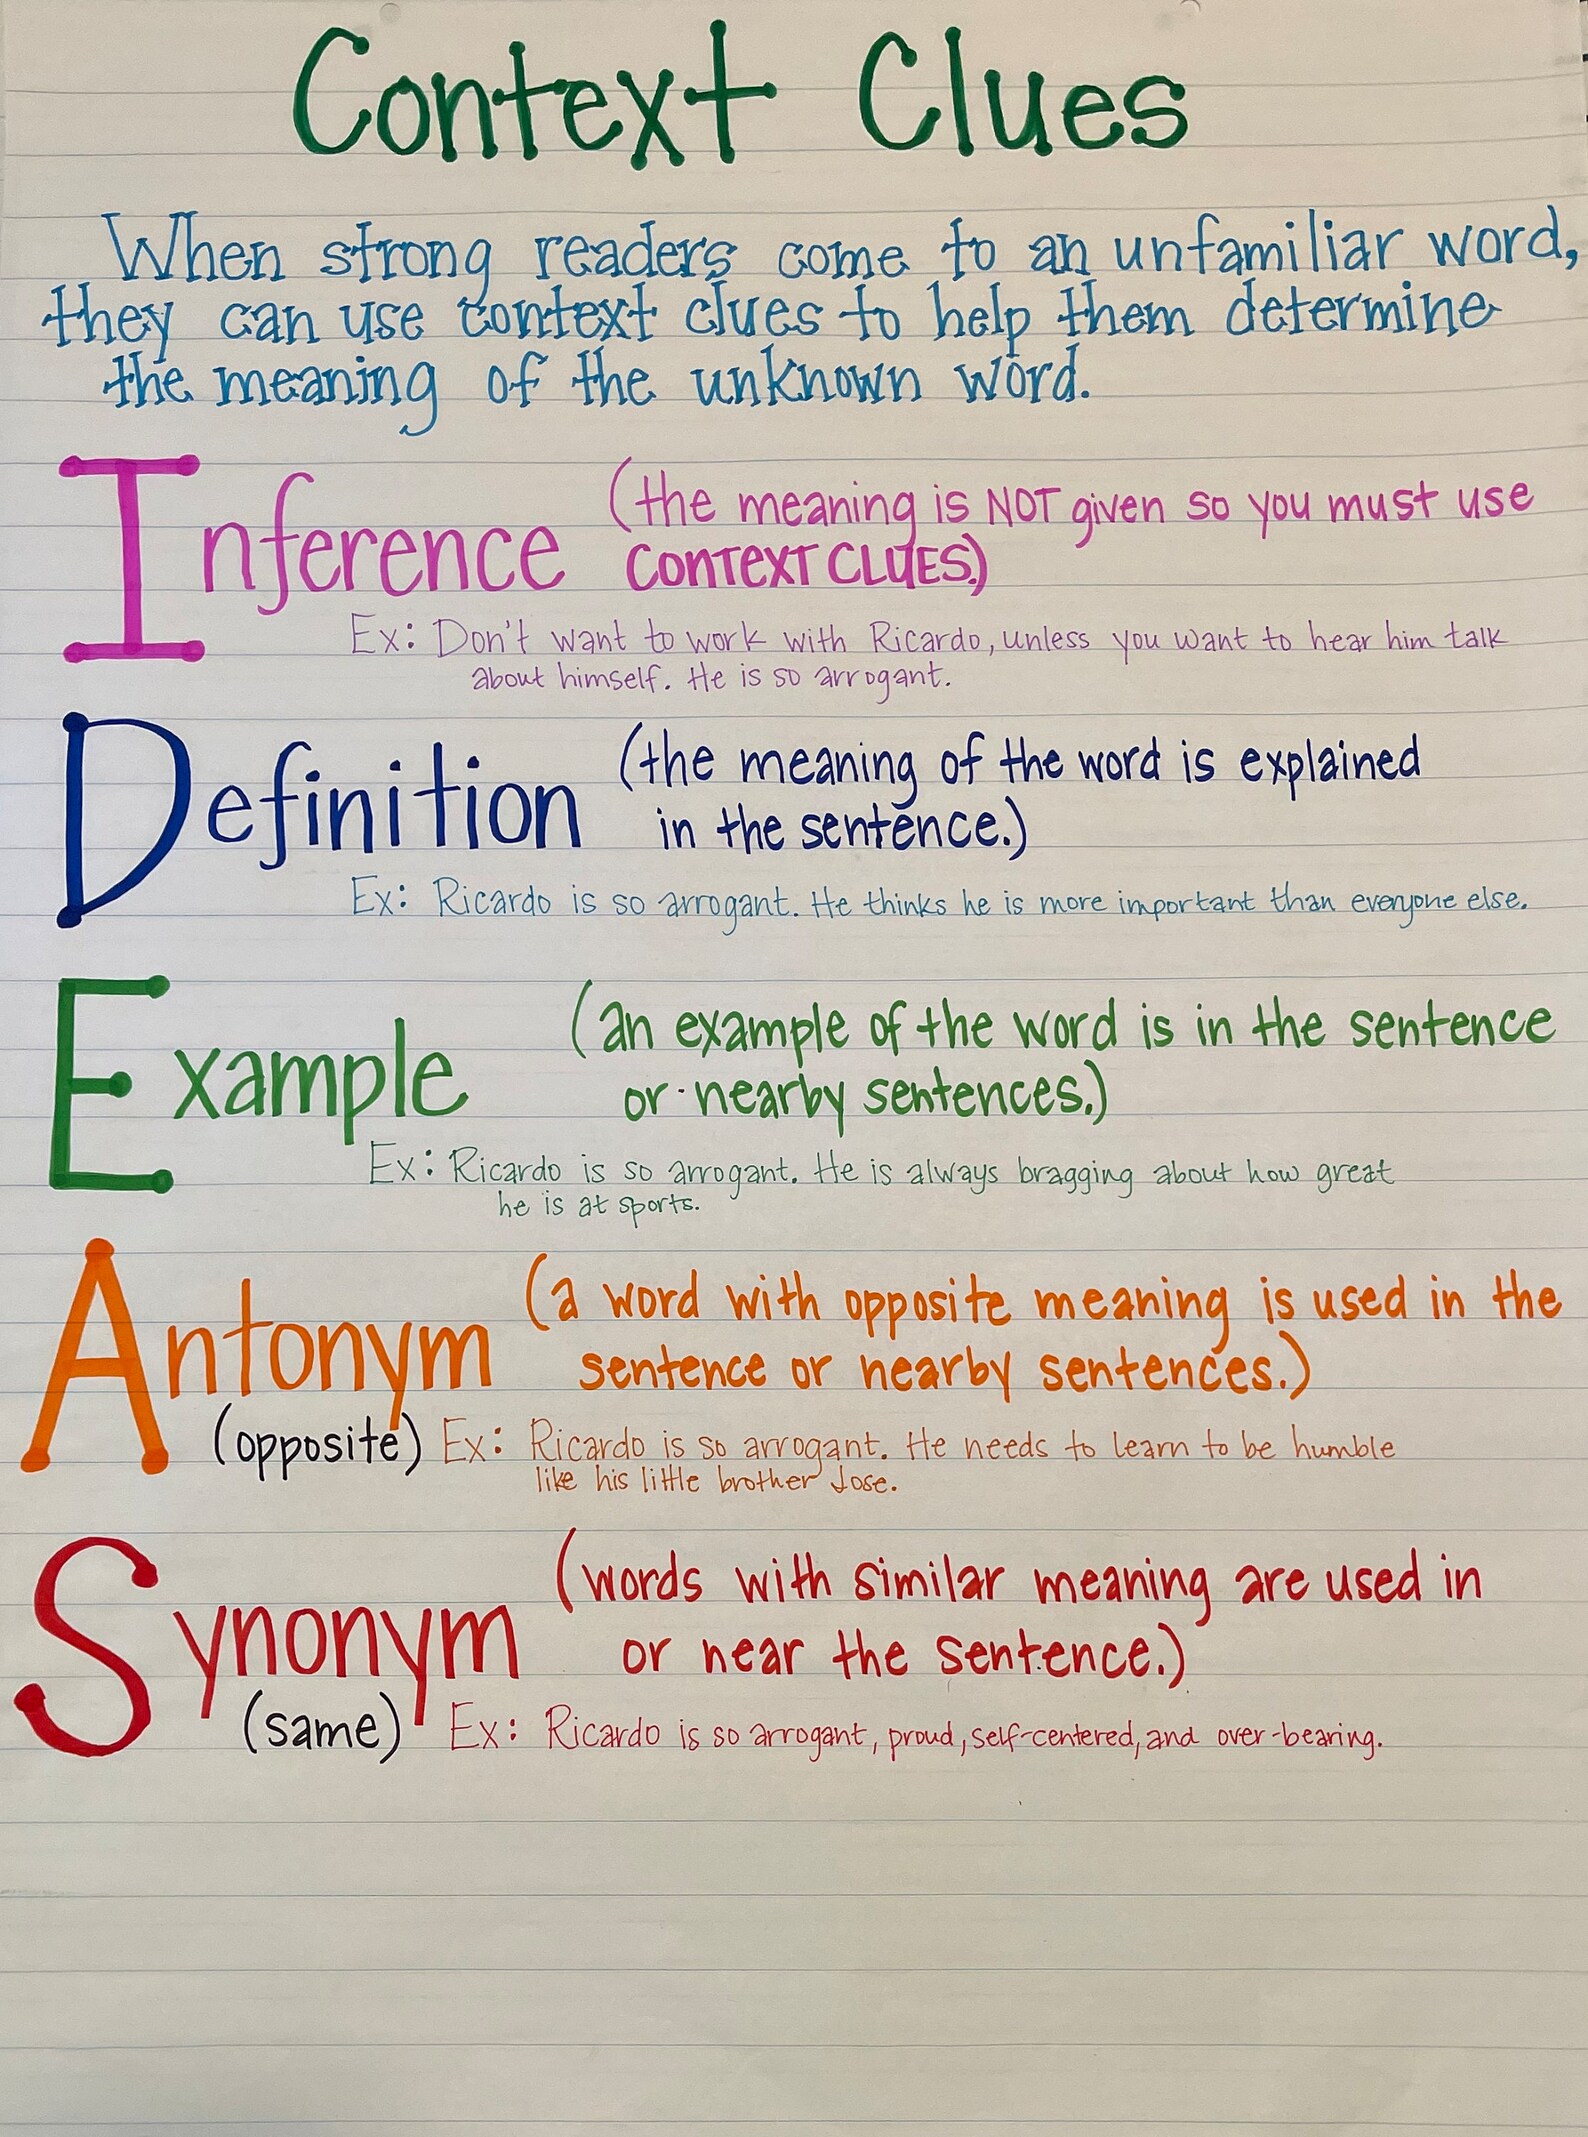 Context Clues
When strong readers come to an unfamiliar word,
they can use context clues to help them determine
the meaning of the unknown word.
Inference (the meaning is NOT given so you must use
CONTEXT CLUES.)
Ex: Don't want to work with Ricardo, unless you want to hear him talk
about himself. He is so arrogant.
Definition (the meaning of the word is explained
in the sentence.)
Ex: Ricardo is so arrogant. He thinks he is more important than everyone else.
Example (an example of the word is in the sentence
or nearby sentences.)
Ex: Ricardo is so arrogant. He is always bragging about how great
he is at sports.
Antonym (a word with opposite meaning is used in the
sentence or nearby sentences.)
(opposite) Ex: Ricardo is so arrogant. He needs to learn to be humble
like his little brother Jose.
Synonym (words with similar meaning are used in
or near the sentence.)
(same) Ex: Ricardo is so arrogant, proud, self-centered, and over-bearing.